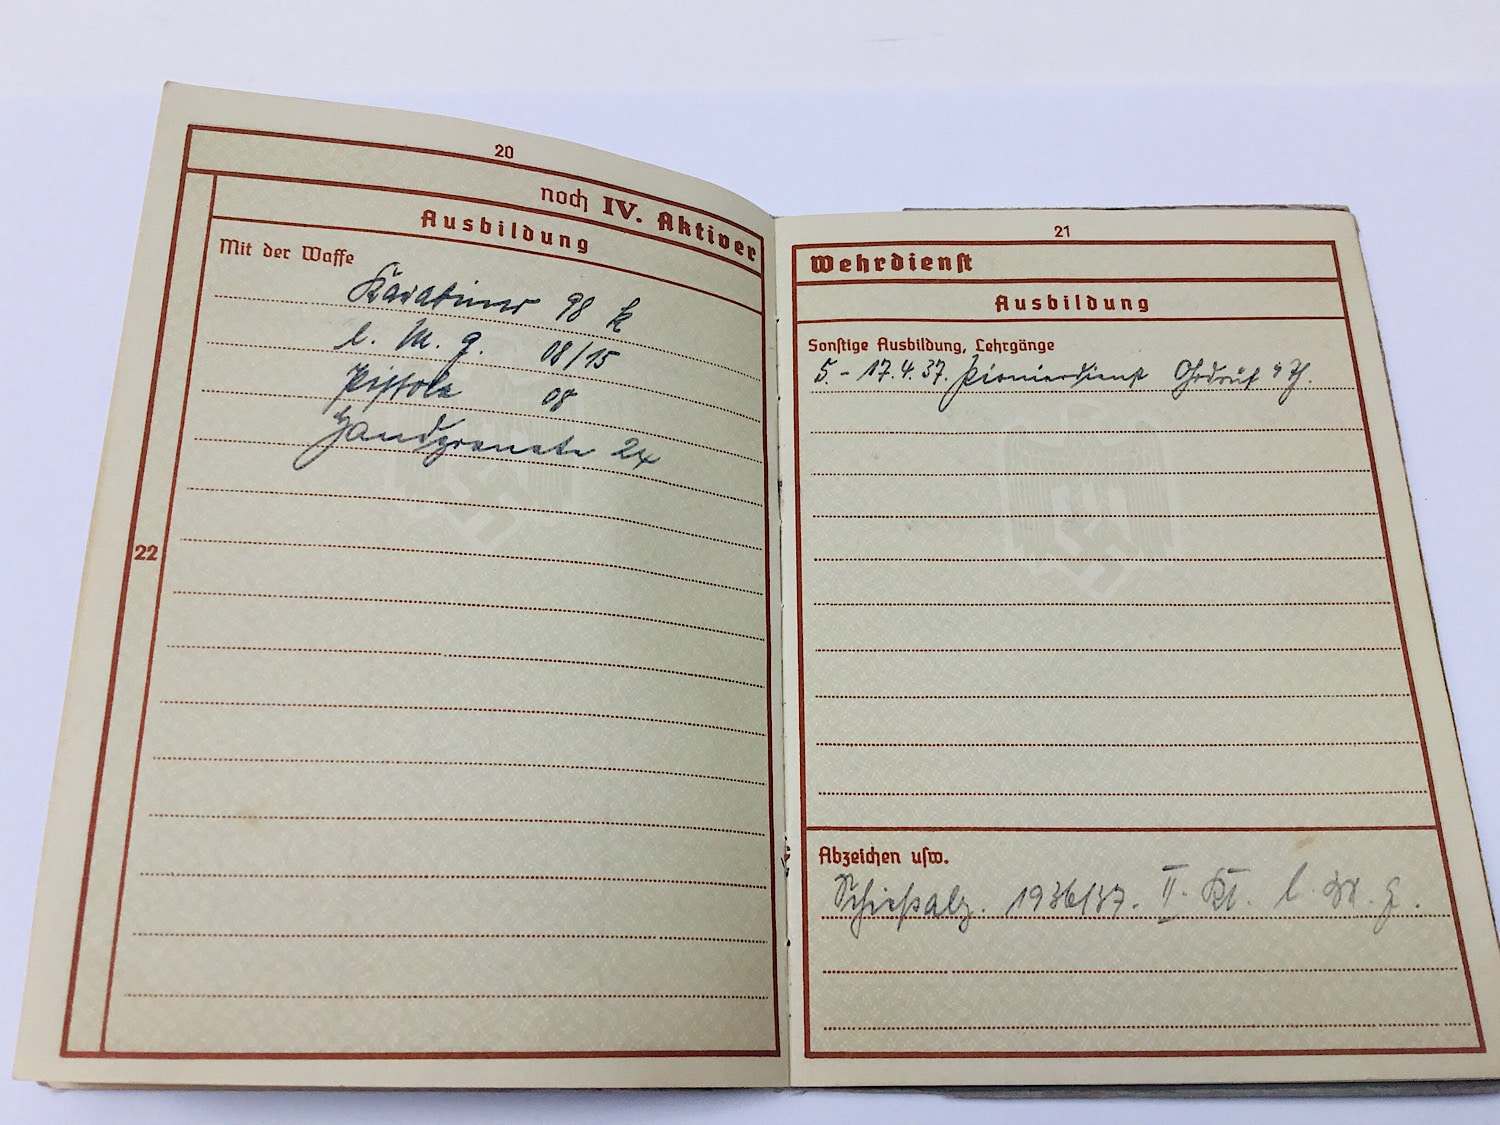 20
noch IV. Aktiver
Ausbildung
Mit der Waffe
Karabiner 98 k
l. M. G. 08/15
Pistole 08
Handgranate 24
22
21
Wehrdienst
Ausbildung
Sonstige Ausbildung, Lehrgänge
5. - 17.4.37. Pionierdienst Ohrdruf
Abzeichen usw.
Schießabz. 1936/37. II. l. M. G.